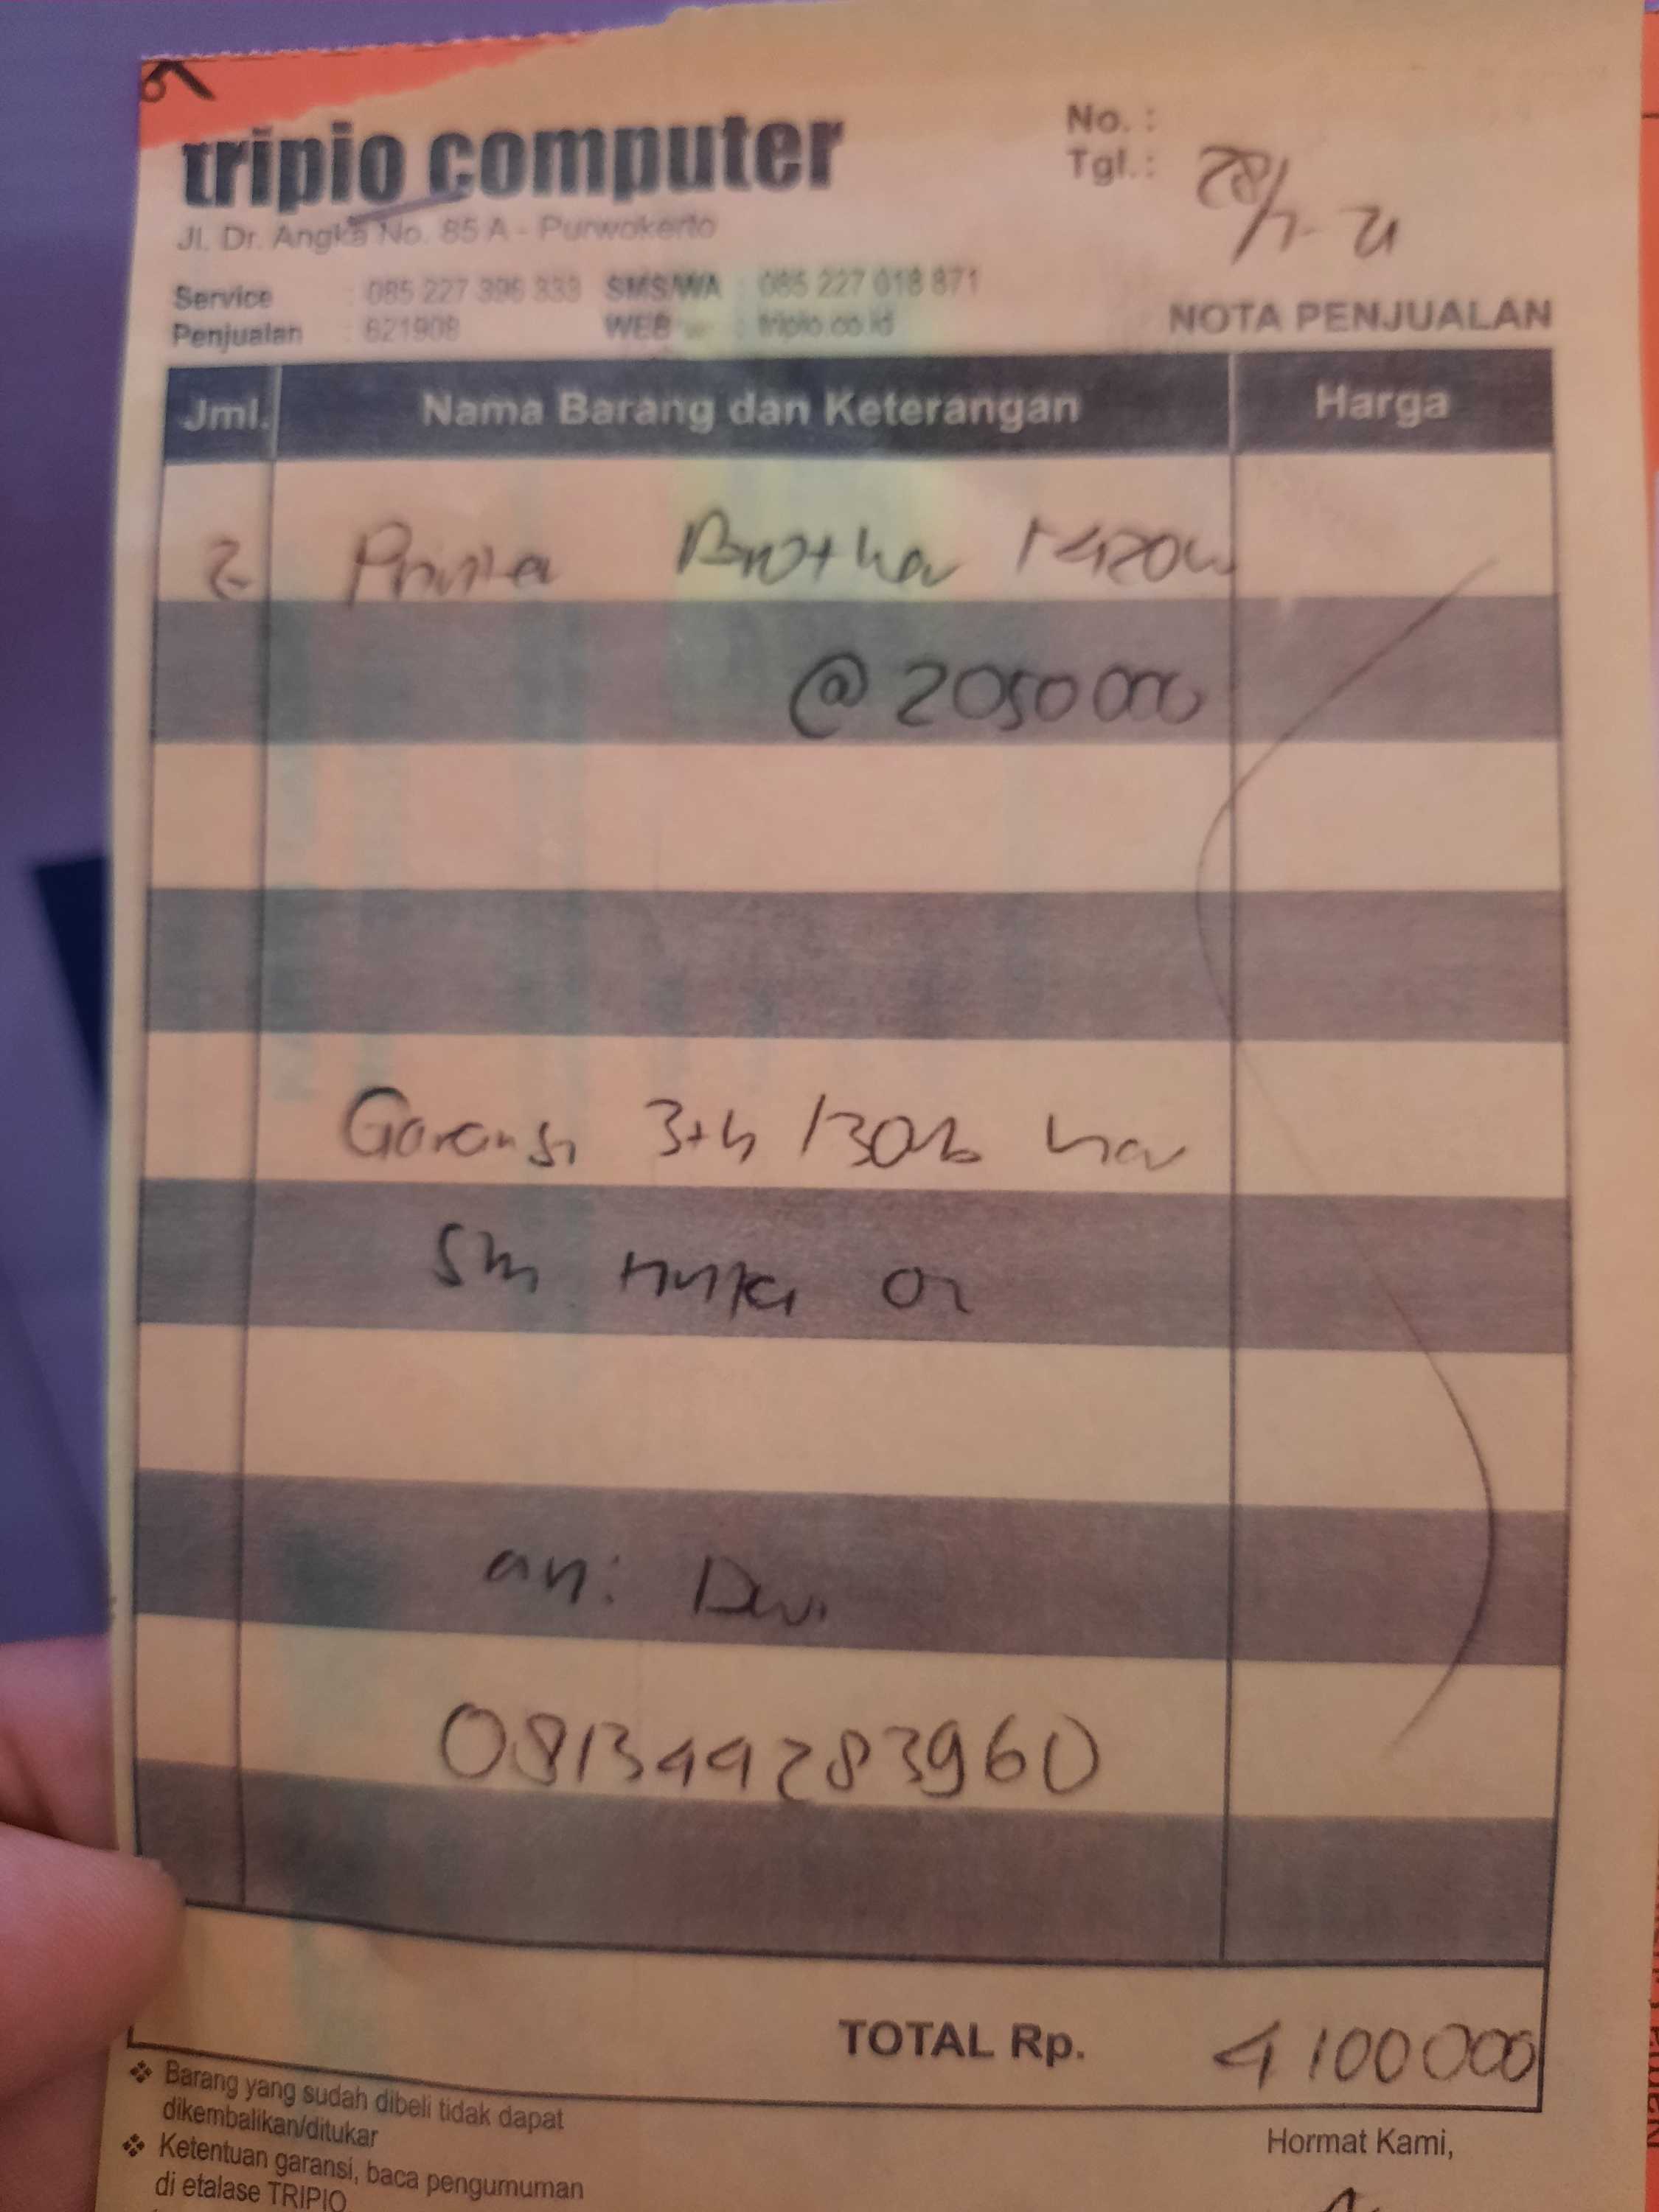 tripio computer
Jl. Dr. Angka No. 85 A - Purwokerto
No. :
Tgl. : 28/7-21
Service : 085 227 396 333 SMS/WA : 085 227 018 871
Penjualan : 621908 WEB : tripio.co.id
NOTA PENJUALAN
Jml. Nama Barang dan Keterangan Harga
2 Printer Brother T420w
@ 2050000
Garansi 3th /30rb
an: Dwi
081344283960
TOTAL Rp. 4100000
Barang yang sudah dibeli tidak dapat
dikembalikan/ditukar
Ketentuan garansi, baca pengumuman
di etalase TRIPIO
Hormat Kami,